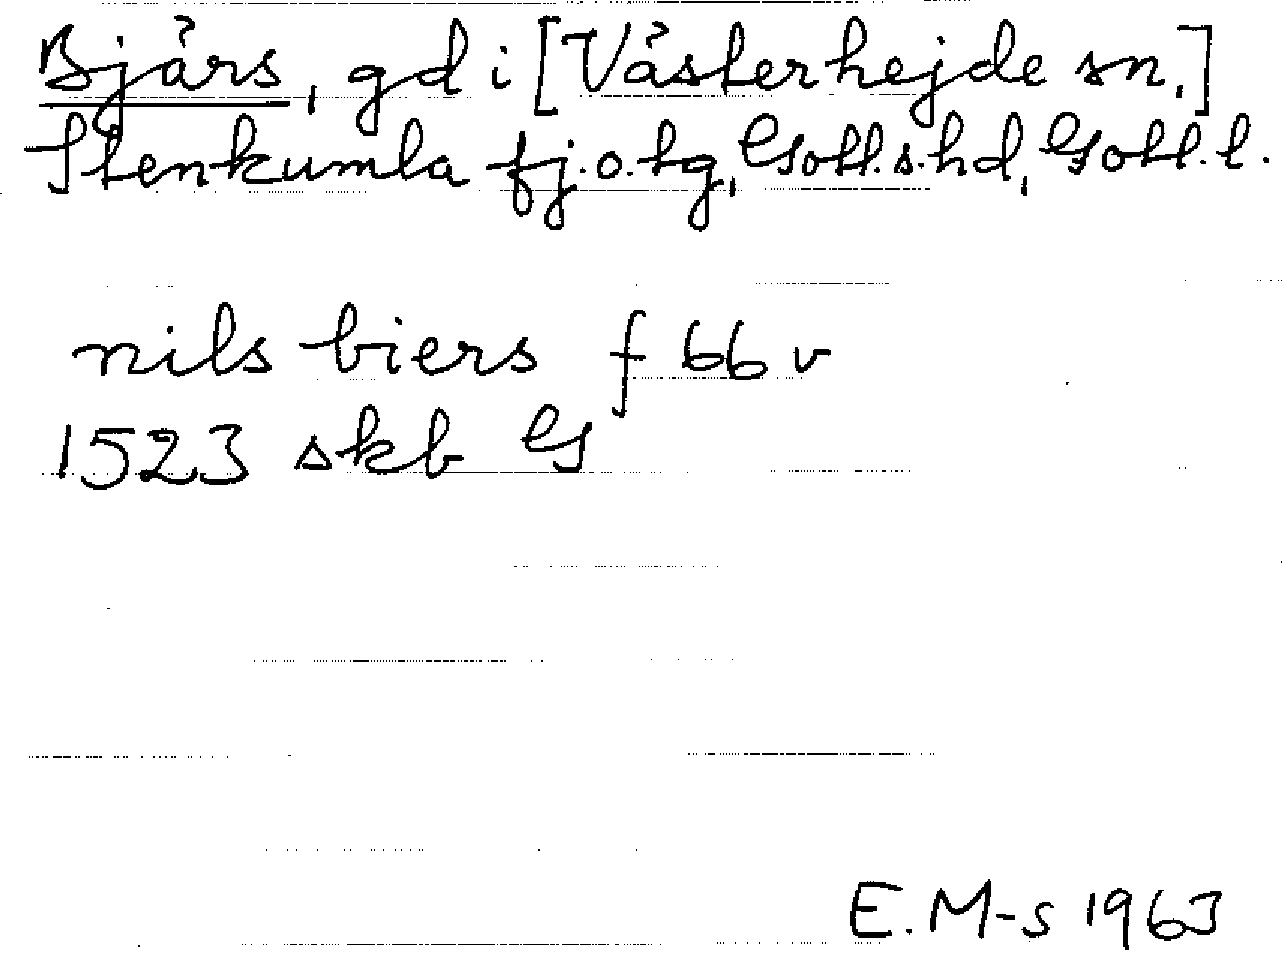 Bjärs, gd i [Västerhejde sn,]
Stenkumla fj. o. tg, Gotl. s. hd, Gotl. l.
nils biers f 66 v
1523 skb G
E. M-s 1963